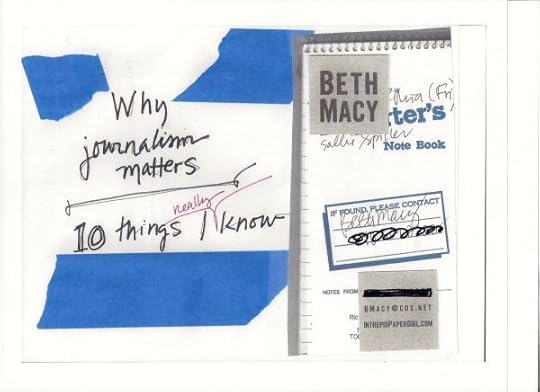 Why
journalism
matters
10 things I really know
BETH
MACY
(Fri)
rter's
Sallie
Note Book
IF FOUND, PLEASE CONTACT
Beth Macy
NOTES FROM
BMACY@COX.NET
INTREPIDPAPERGIRL.COM
Ric
TO